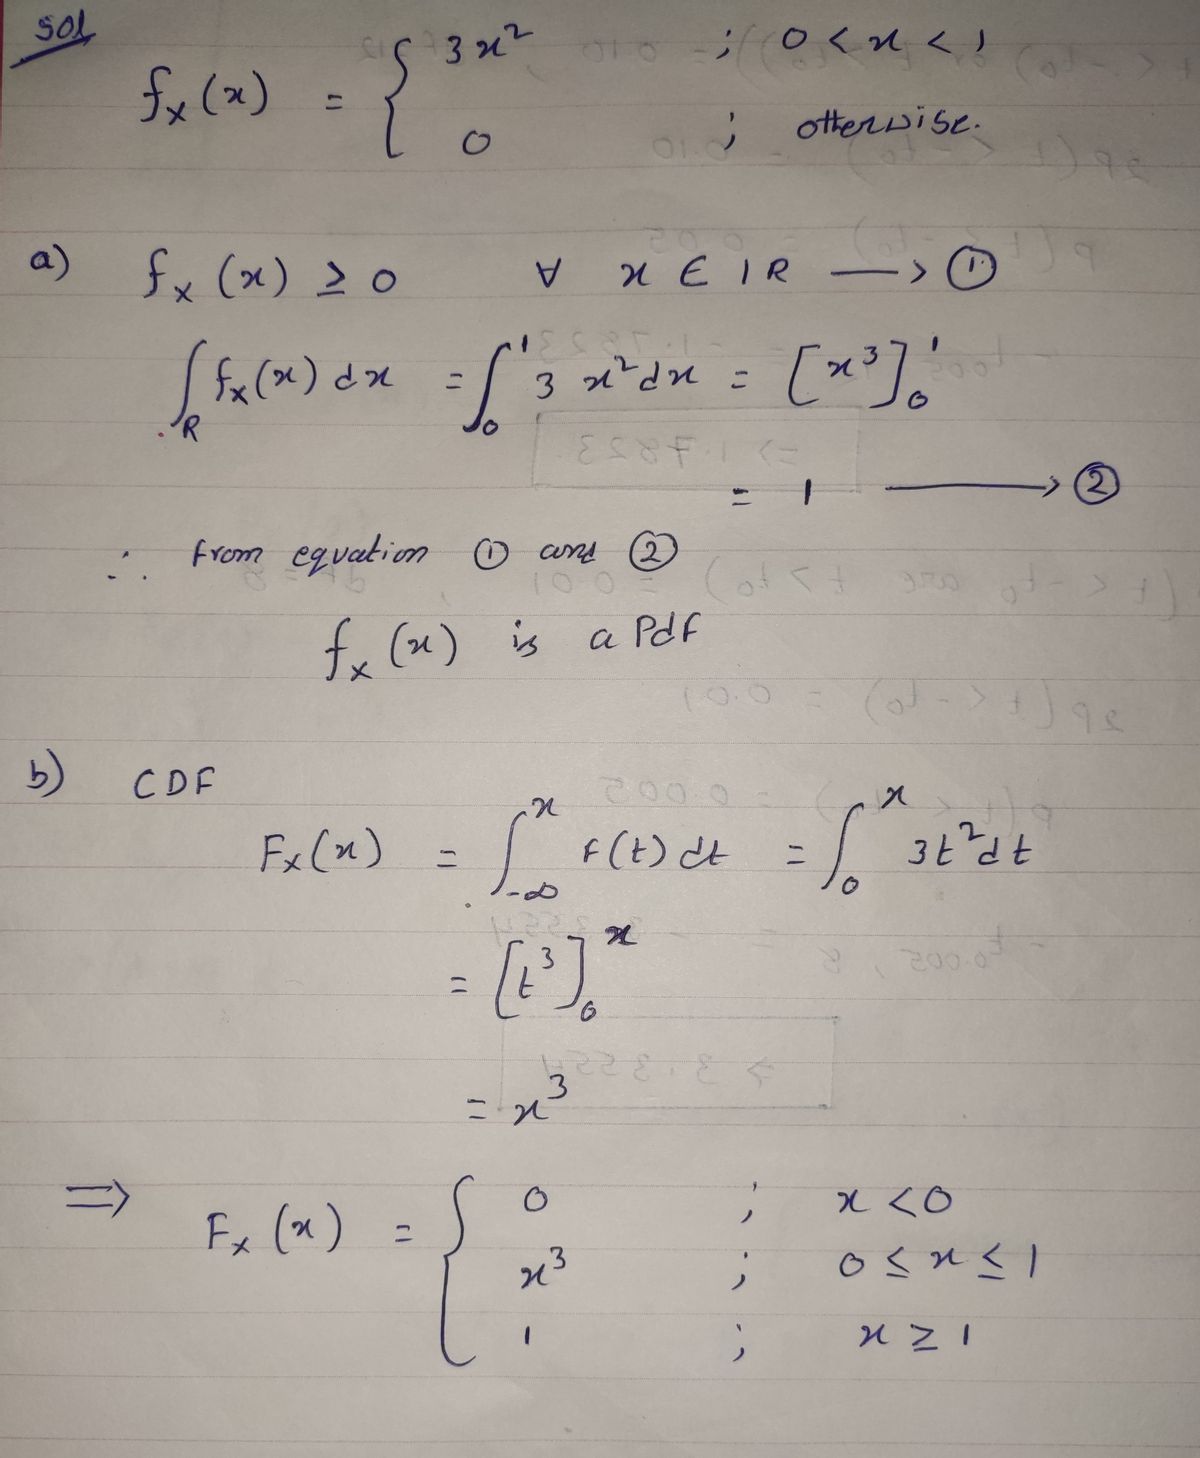 Sol
fx(x) = { 3x² ; 0 < x < 1
0 ; otherwise.
a) fx(x) ≥ 0 ∀ x ∈ IR —> ①
∫R fx(x) dx = ∫₀¹ 3x² dx = [x³]₀¹
= 1 ——> ②
∴ from equation ① and ②
fx(x) is a Pdf
b) CDF
Fx(x) = ∫₋∞ˣ f(t) dt = ∫₀ˣ 3t² dt
= [t³]₀ˣ
= x³
⇒ Fx(x) = { 0 ; x < 0
x³ ; 0 ≤ x ≤ 1
1 ; x ≥ 1